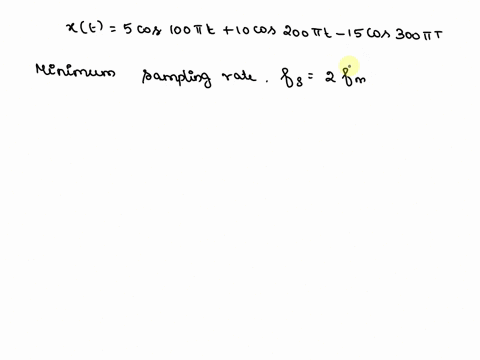 x(t) = 5 cos 100 π t + 10 cos 200 π t - 15 cos 300 π T
Minimum sampling rate . fs = 2 fm